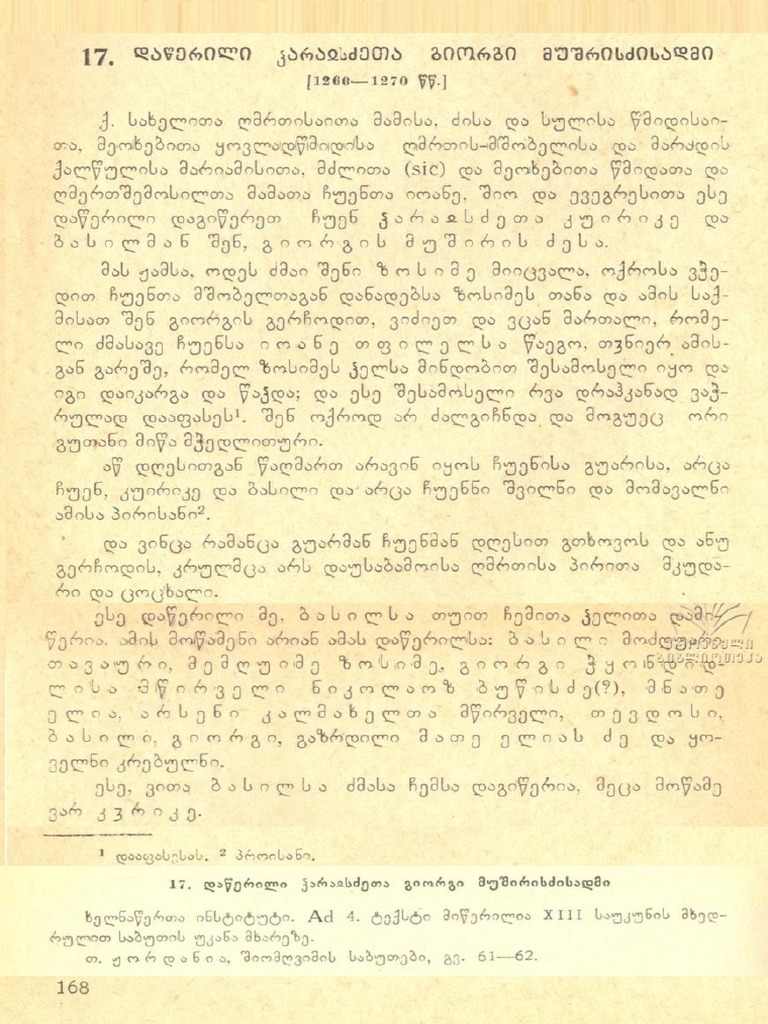 17. დაწერილი ჯარაჲსძეთა გიორგი მუშრისძისადმი
[1260—1270 წწ.]
ქ. სახელითა ღმრთისაითა მამისა, ძისა და სულისა წმიდისაი-
თა, მეოხებითა ყოვლადწმიდისა ღმრთის-მშობელისა და მარადის
ქალწულისა მარიამისითა, მძლითა (sic) და მეოხებითა წმიდათა და
ღმერთშემოსილთა მამათა ჩუენთა იოანე, შიო და ევეგრესითა ესე
დაწერილი დაგიწერეთ ჩუენ ჯარაჲსძეთა კუირიკე და
ბასილმან შენ, გიორგის მუშირის ძესა.
მას ჟამსა, ოდეს ძმაი შენი ზოსიმე მიიცვალა, ოქროსა ვჰე-
დით ჩუენთა მშობელთაგან დანადებსა ზოსიმეს თანა და ამის საქ-
მისათ შენ გიორგის გერჩოდით, ვიძიეთ და ვცან მართალი, რომე-
ლი ძმასავე ჩუენსა იოანე თფილელსა წაეგო, თჳნიერ ამის-
გან გარეშე, რომელ ზოსიმეს ჴელსა მინდობით შესამოსელი იყო და
იგი დაიკარგა და წაჴდა; და ესე შესამოსელი რვა დრაჰკანად ვაჭ-
რულად დააფასეს¹. შენ ოქროდ არ ძალგიჩნდა და მოგუეც ორი
გუთანი მიწა მჭედლითური.
აწ დღესითგან წაღმართ არავინ იყოს ჩუენისა გუარისა, არცა
ჩუენ, კუირიკე და ბასილი და არცა ჩუენნი შვილნი და მომავალნი
ამისა პირისანი².
და ვინცა რამანცა გუარმან ჩუენმან დღესით გთხოვოს და ანუ
გერჩოდის, კრულმცა არს დაუსაბამოისა ღმრთისა პირითა მკუდა-
რი და ცოცხალი.
ესე დაწერილი მე, ბასილსა თუით ჩემითა ჴელითა დამი-
წერია. ამის მოწამენი არიან ამას დაწერილსა: ბასილი მოძღუარი
თავაური, მემღუიმე ზოსიმე, გიორგი ჭყონდიდ-
ლისა მწირველი ნიკოლაოზ ბუწისძე(?), მნათე
ელია, არსენი კალმახელთა მწირველი, თევდოსი,
ბასილი, გიორგი, გაზრდილი მათე ელიას ძე და ყო-
ველნი კრებულნი.
ესე, ვითა ბასილსა ძმასა ჩემსა დაგიწერია, მეცა მოწამე
ვარ კჳრიკე.
¹ დააფასესას. ² პროისანი.
17. დაწერილი ჯარაჲსძეთა გიორგი მუშირისძისადმი
ხელნაწერთა ინსტიტუტი. Ad 4. ტექსტი მიწერილია XIII საუკუნის მხედ-
რულით საბუთის უკანა მხარეზე.
თ. ჟორდანია, შიომღვიმის საბუთები, გვ. 61—62.
168
ეროვნული
ბიბლიოთეკა